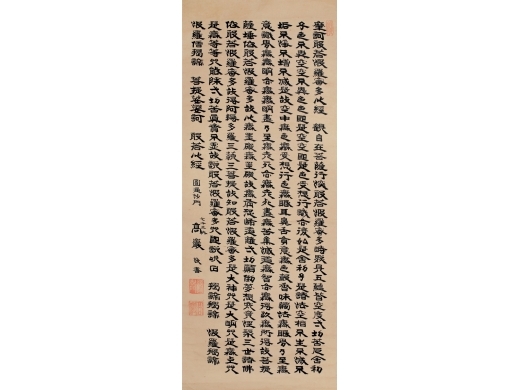 摩訶般若波羅蜜多心經 觀自在菩薩行深般若波羅蜜多時照見五蘊皆空度一切苦厄舍利
子色不異空空不異色色即是空空即是色受想行識亦復如是舍利子是諸法空相不生不滅不
垢不淨不增不減是故空中無色無受想行識無眼耳鼻舌身意無色聲香味觸法無眼界乃至無
意識界無無明亦無無明盡乃至無老死亦無老死盡無苦集滅道無智亦無得以無所得故菩提
薩埵依般若波羅蜜多故心無罣礙無罣礙故無有恐怖遠離一切顛倒夢想究竟涅槃三世諸佛
依般若波羅蜜多故得阿耨多羅三藐三菩提故知般若波羅蜜多是大神咒是大明咒是無上咒
是無等等咒能除一切苦真實不虛故說般若波羅蜜多咒即說咒曰 揭諦揭諦 波羅揭諦
波羅僧揭諦 菩提娑婆訶 般若心經 沙門 高巖